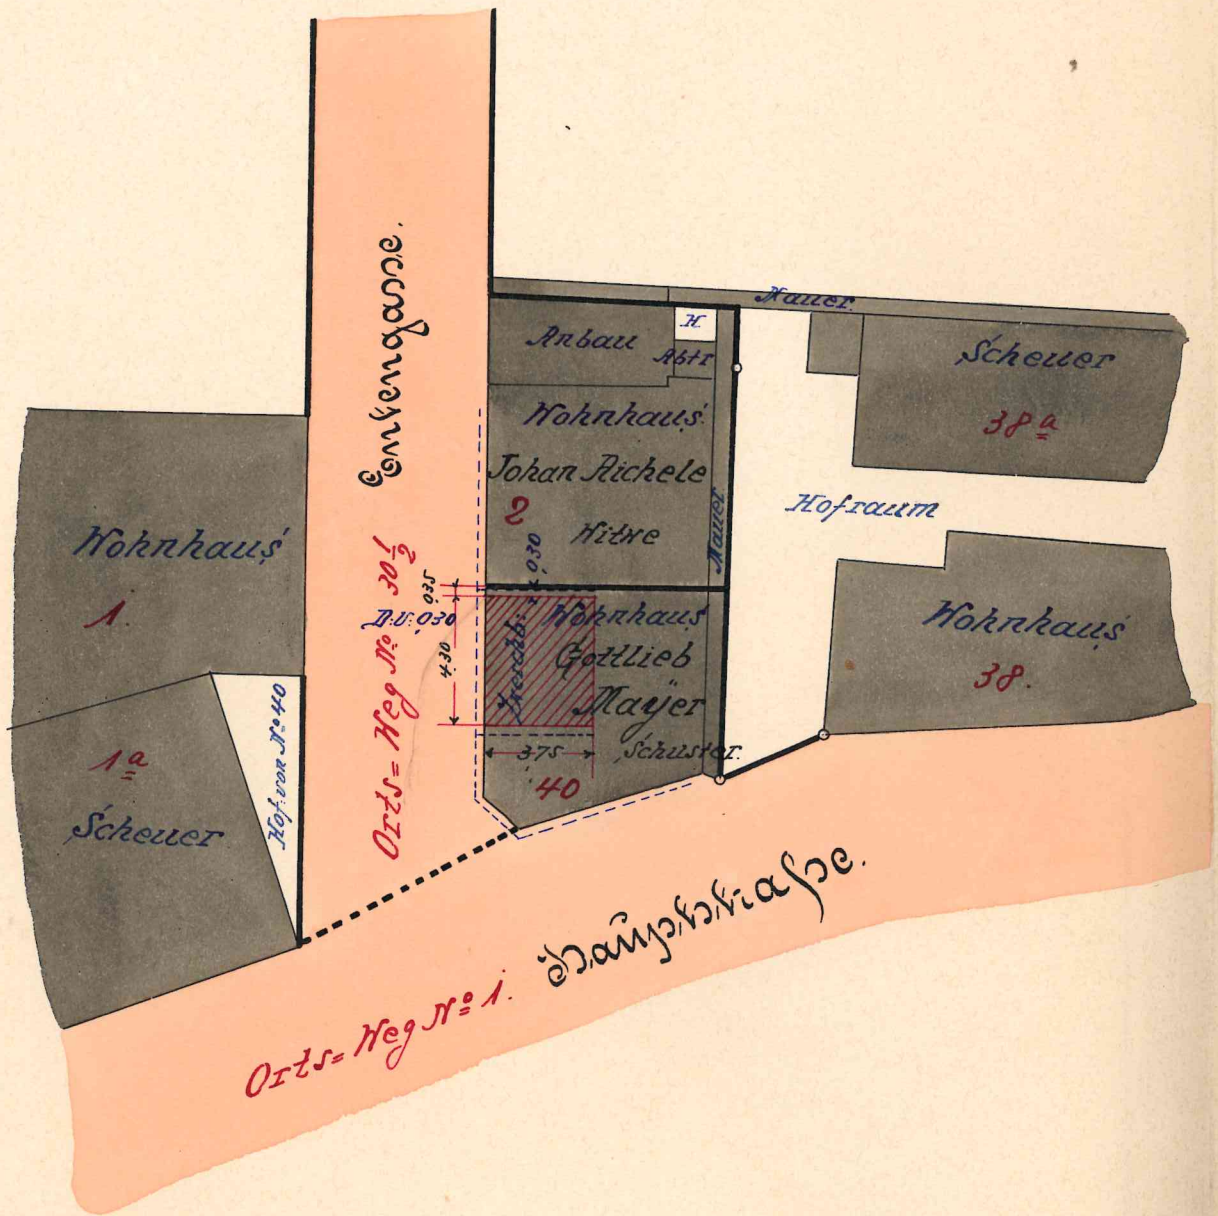 Mauer.
H
Anbau
Abtr
Scheuer
38 a
Wohnhaus
Johan Aichele
2
Witwe
Mauer
Hofraum
Wohnhaus
1.
Orts= Weg No 30 1/2
0,35
0,30
D.V. 0,30
4,30
Wohnhaus
Gottlieb
Mayer
Schuster.
3,75
40
Wohnhaus
38.
1a
Scheuer
Hof von No 40
Orts= Weg No 1.
Hauptstraße.